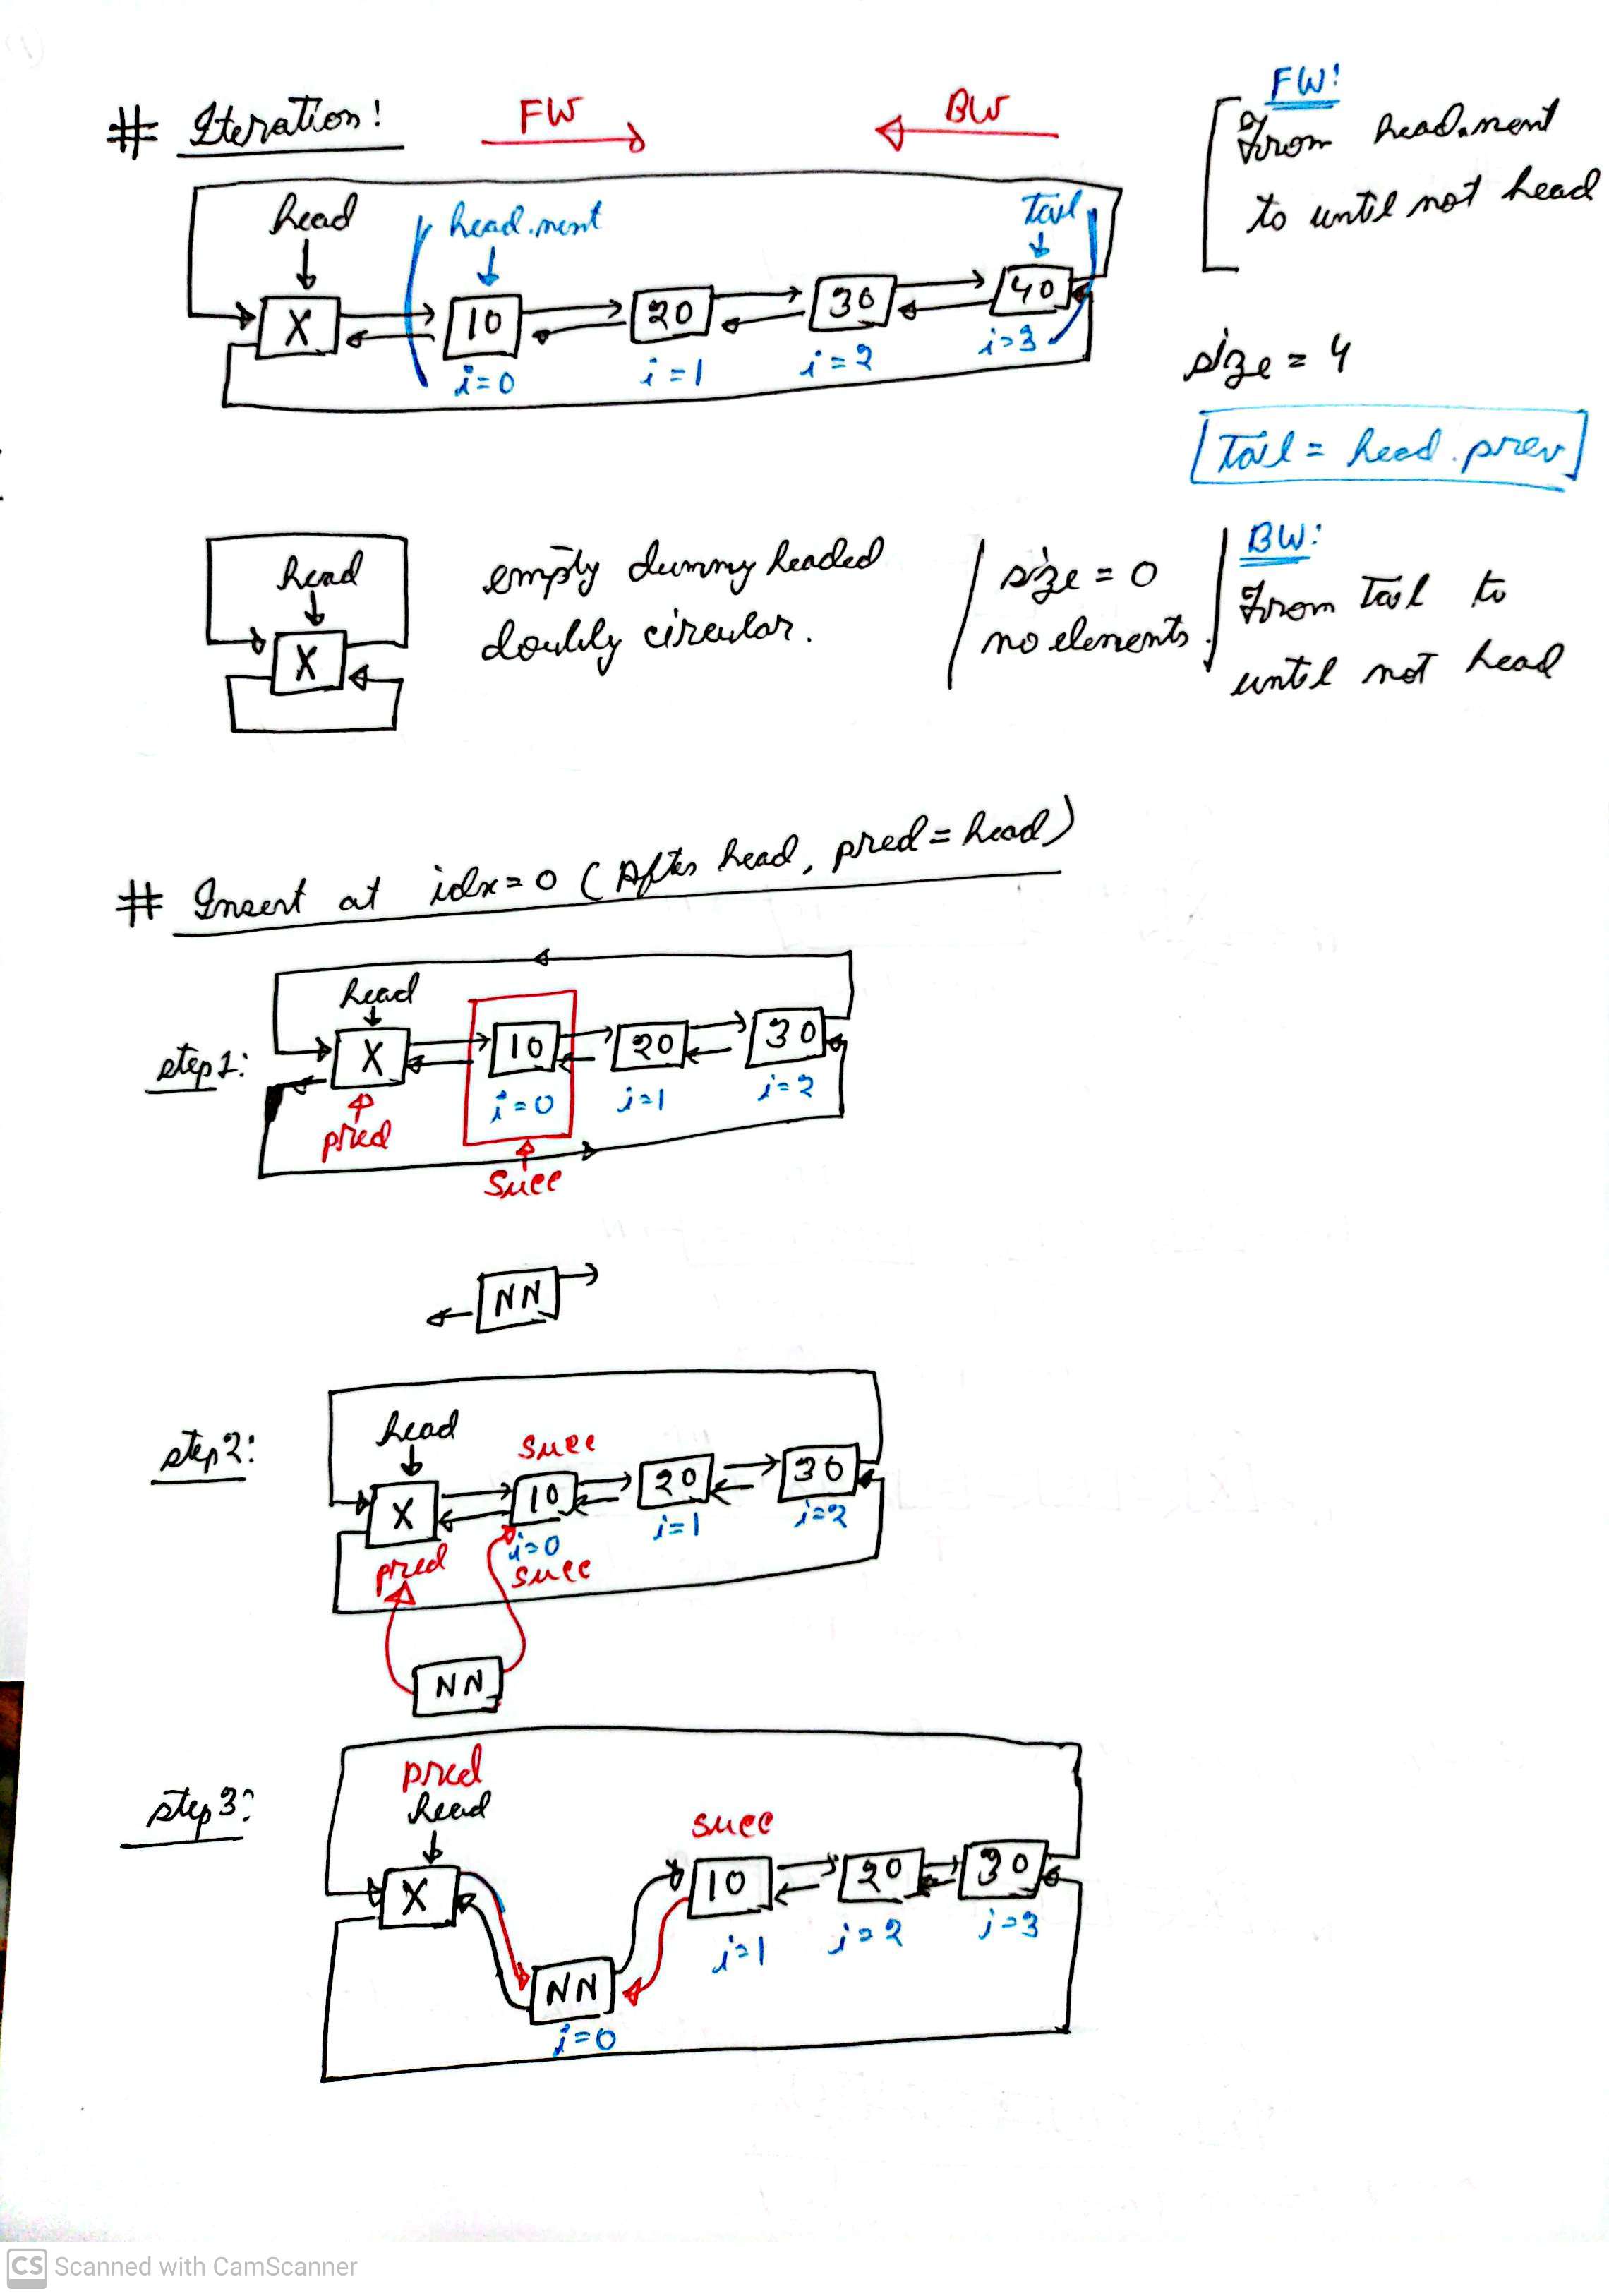 # Iteration!
FW
BW
FW!
From head.next
to until not head
head
head.next
tail
X
10
20
30
40
i=0
i=1
i=2
i=3
size = 4
[Tail = head.prev]
head
X
empty dummy headed
doubly circular.
size = 0
no elements.
BW:
From Tail to
until not head
# Insert at idx=0 (After head, pred = head)
step1:
head
X
10
20
30
i=0
i=1
i=2
pred
succ
NN
step2:
head
succ
X
10
20
30
i=0
i=1
i=2
pred
succ
NN
step3:
pred
head
succ
X
10
20
30
i=1
i=2
i=3
NN
i=0
CS Scanned with CamScanner